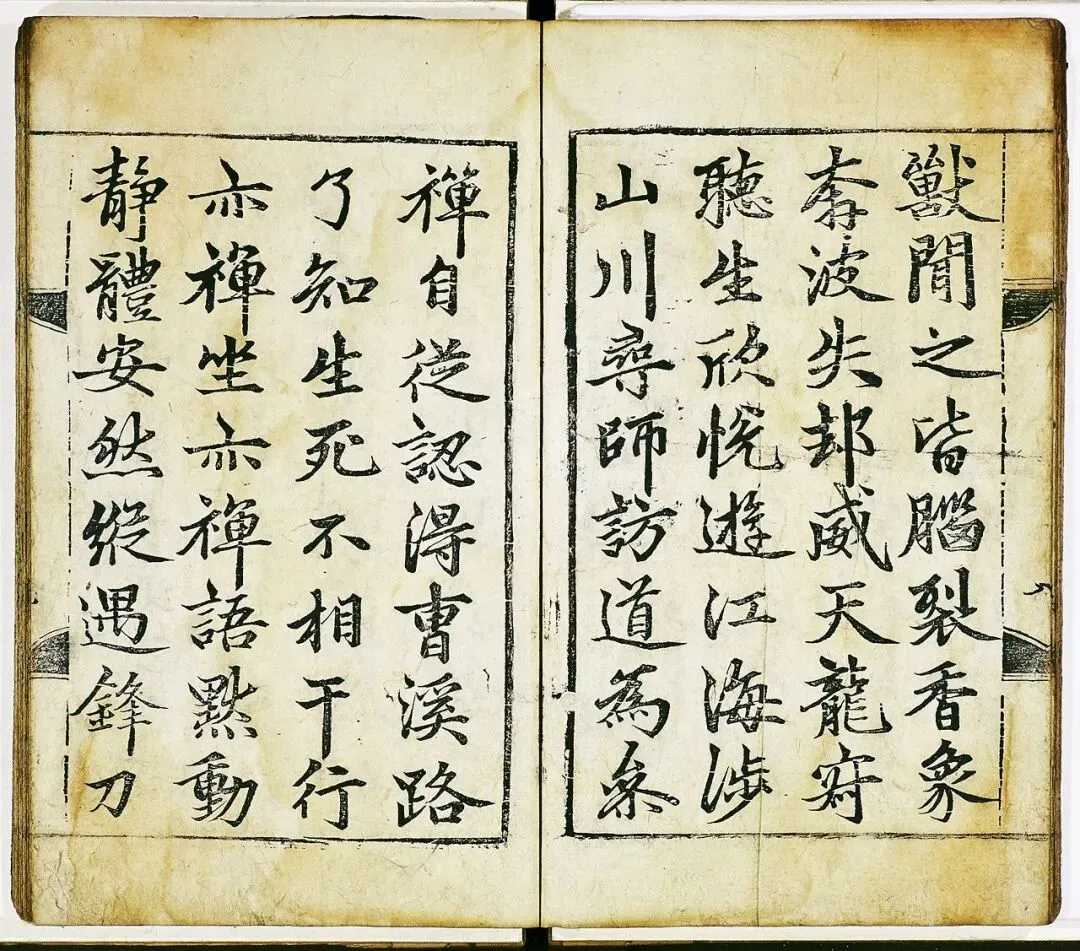 獸聞之皆腦裂香象
奔波失却威天龍寂
聽生欣悅遊江海涉
山川尋師訪道為參
禪自從認得曹溪路
了知生死不相干行
亦禪坐亦禪語默動
靜體安然縱遇鋒刀